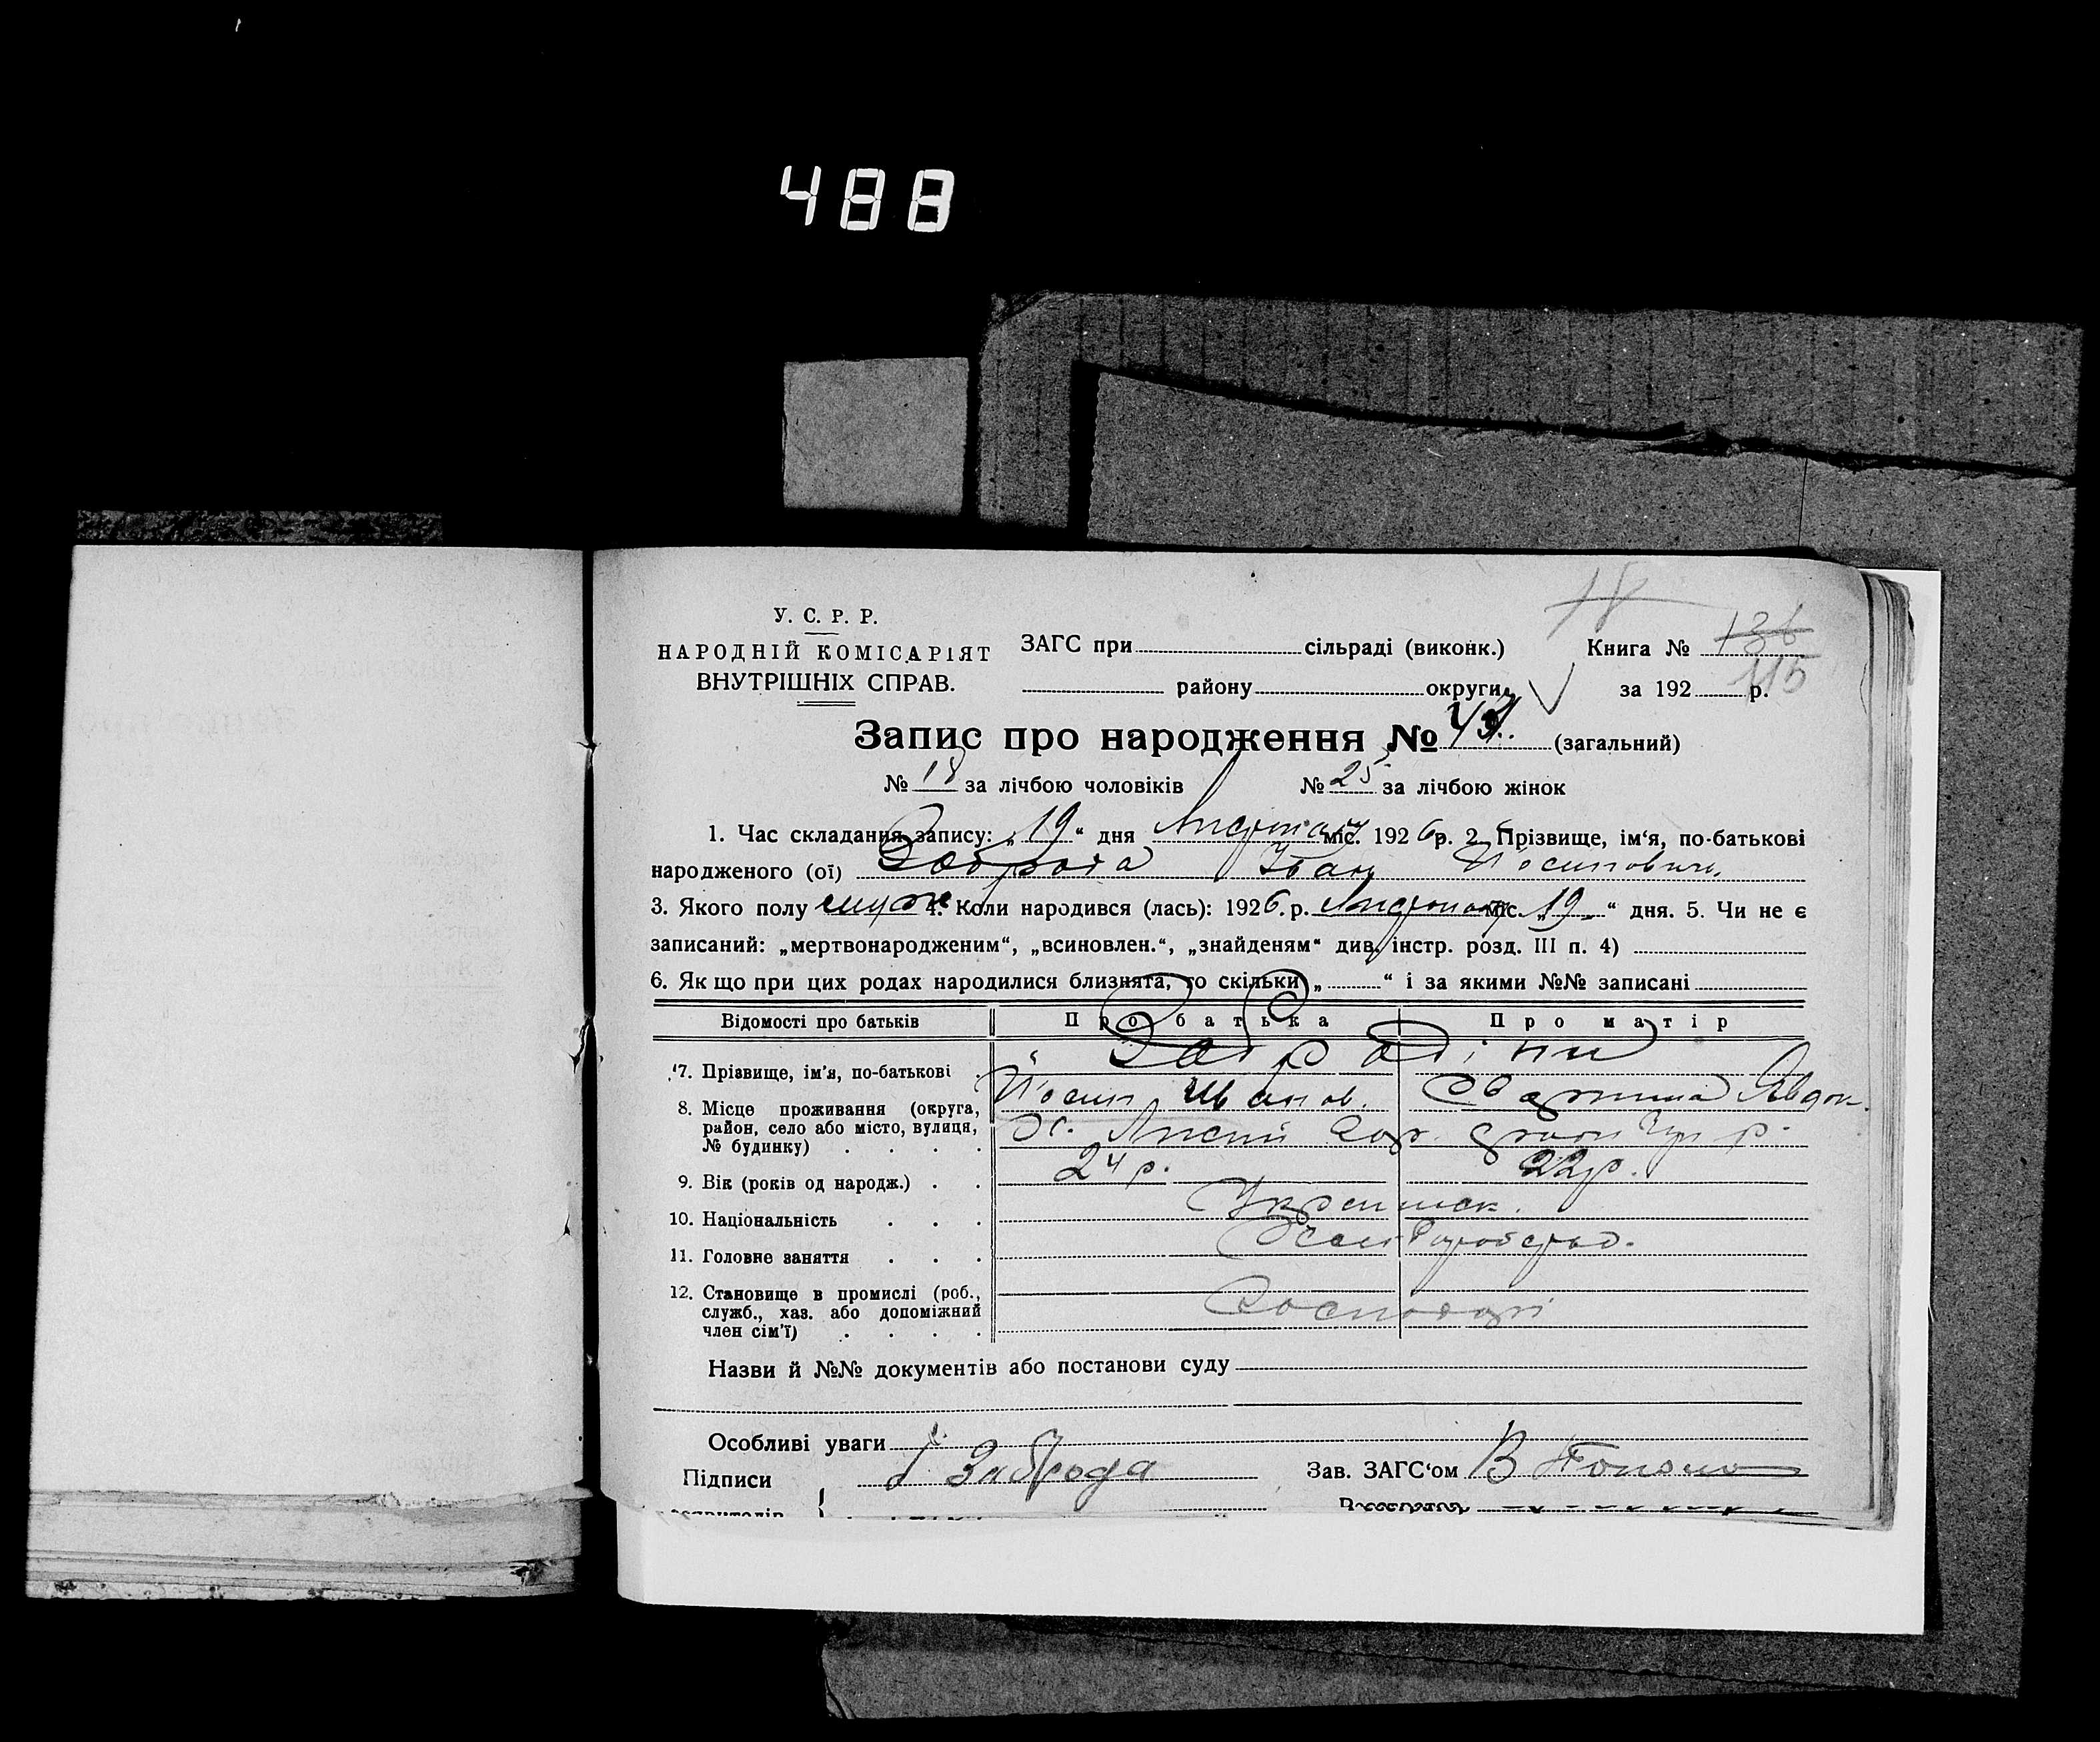 488
У. С. Р. Р.
НАРОДНІЙ КОМІСАРІЯТ
ВНУТРІШНІХ СПРАВ.
ЗАГС при сільраді (виконк.)
району округи
18
Книга № 136
115
за 192 р.
Запис про народження № 43. (загальний)
№ 18 за лічбою чоловіків № 25 за лічбою жінок
1. Час складання запису: „19“ дня Листопад міс. 1926 р. 2. Прізвище, ім‘я, по-батькові
народженого (ої) Заброда Іван Йосипович.
3. Якого полу муж 4. Коли народився (лась): 1926. р. Листопад міс. „19“ дня. 5. Чи не є
записаний: „мертвонародженим“, „всиновлен.“, „знайденям“ див. інстр. розд. III п. 4)
6. Як що при цих родах народилися близнята, то скільки „ “ і за якими №№ записані
Відомості про батьків Про батька Про матір
7. Прізвище, ім‘я, по-батькові
Йосип Іванов. Явдок.
8. Місце проживання (округа,
район, село або місто, вулиця,
№ будинку)
9. Вік (років од народж.) 24 р. 22 р.
10. Національність
11. Головне заняття
12. Становище в промислі (роб.,
служб., хаз. або допоміжний
член сім‘ї)
Господарі
Назви й №№ документів або постанови суду
Особливі уваги
Підписи Заброда Зав. ЗАГС‘ом В